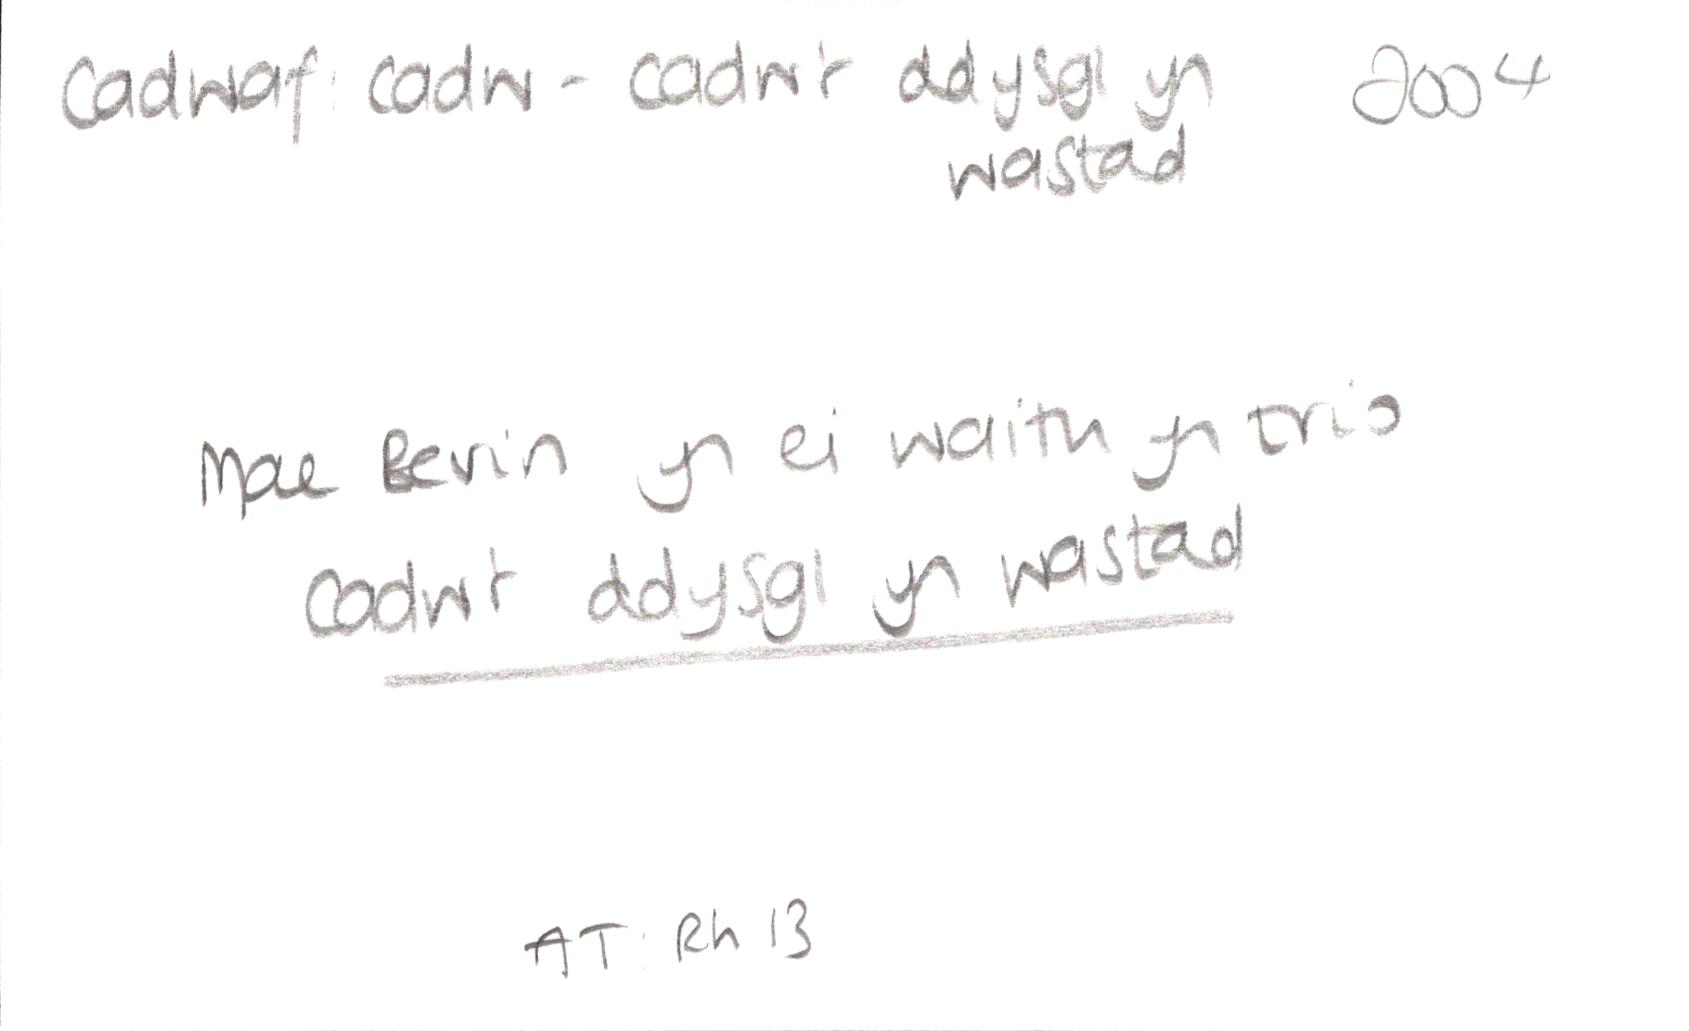 Cadwaf: cadw - cadw'r ddysgl yn 2004
wastad
Mae Bevin yn ei waith yn trio
cadw'r ddysgl yn wastad
AT: Rh 13